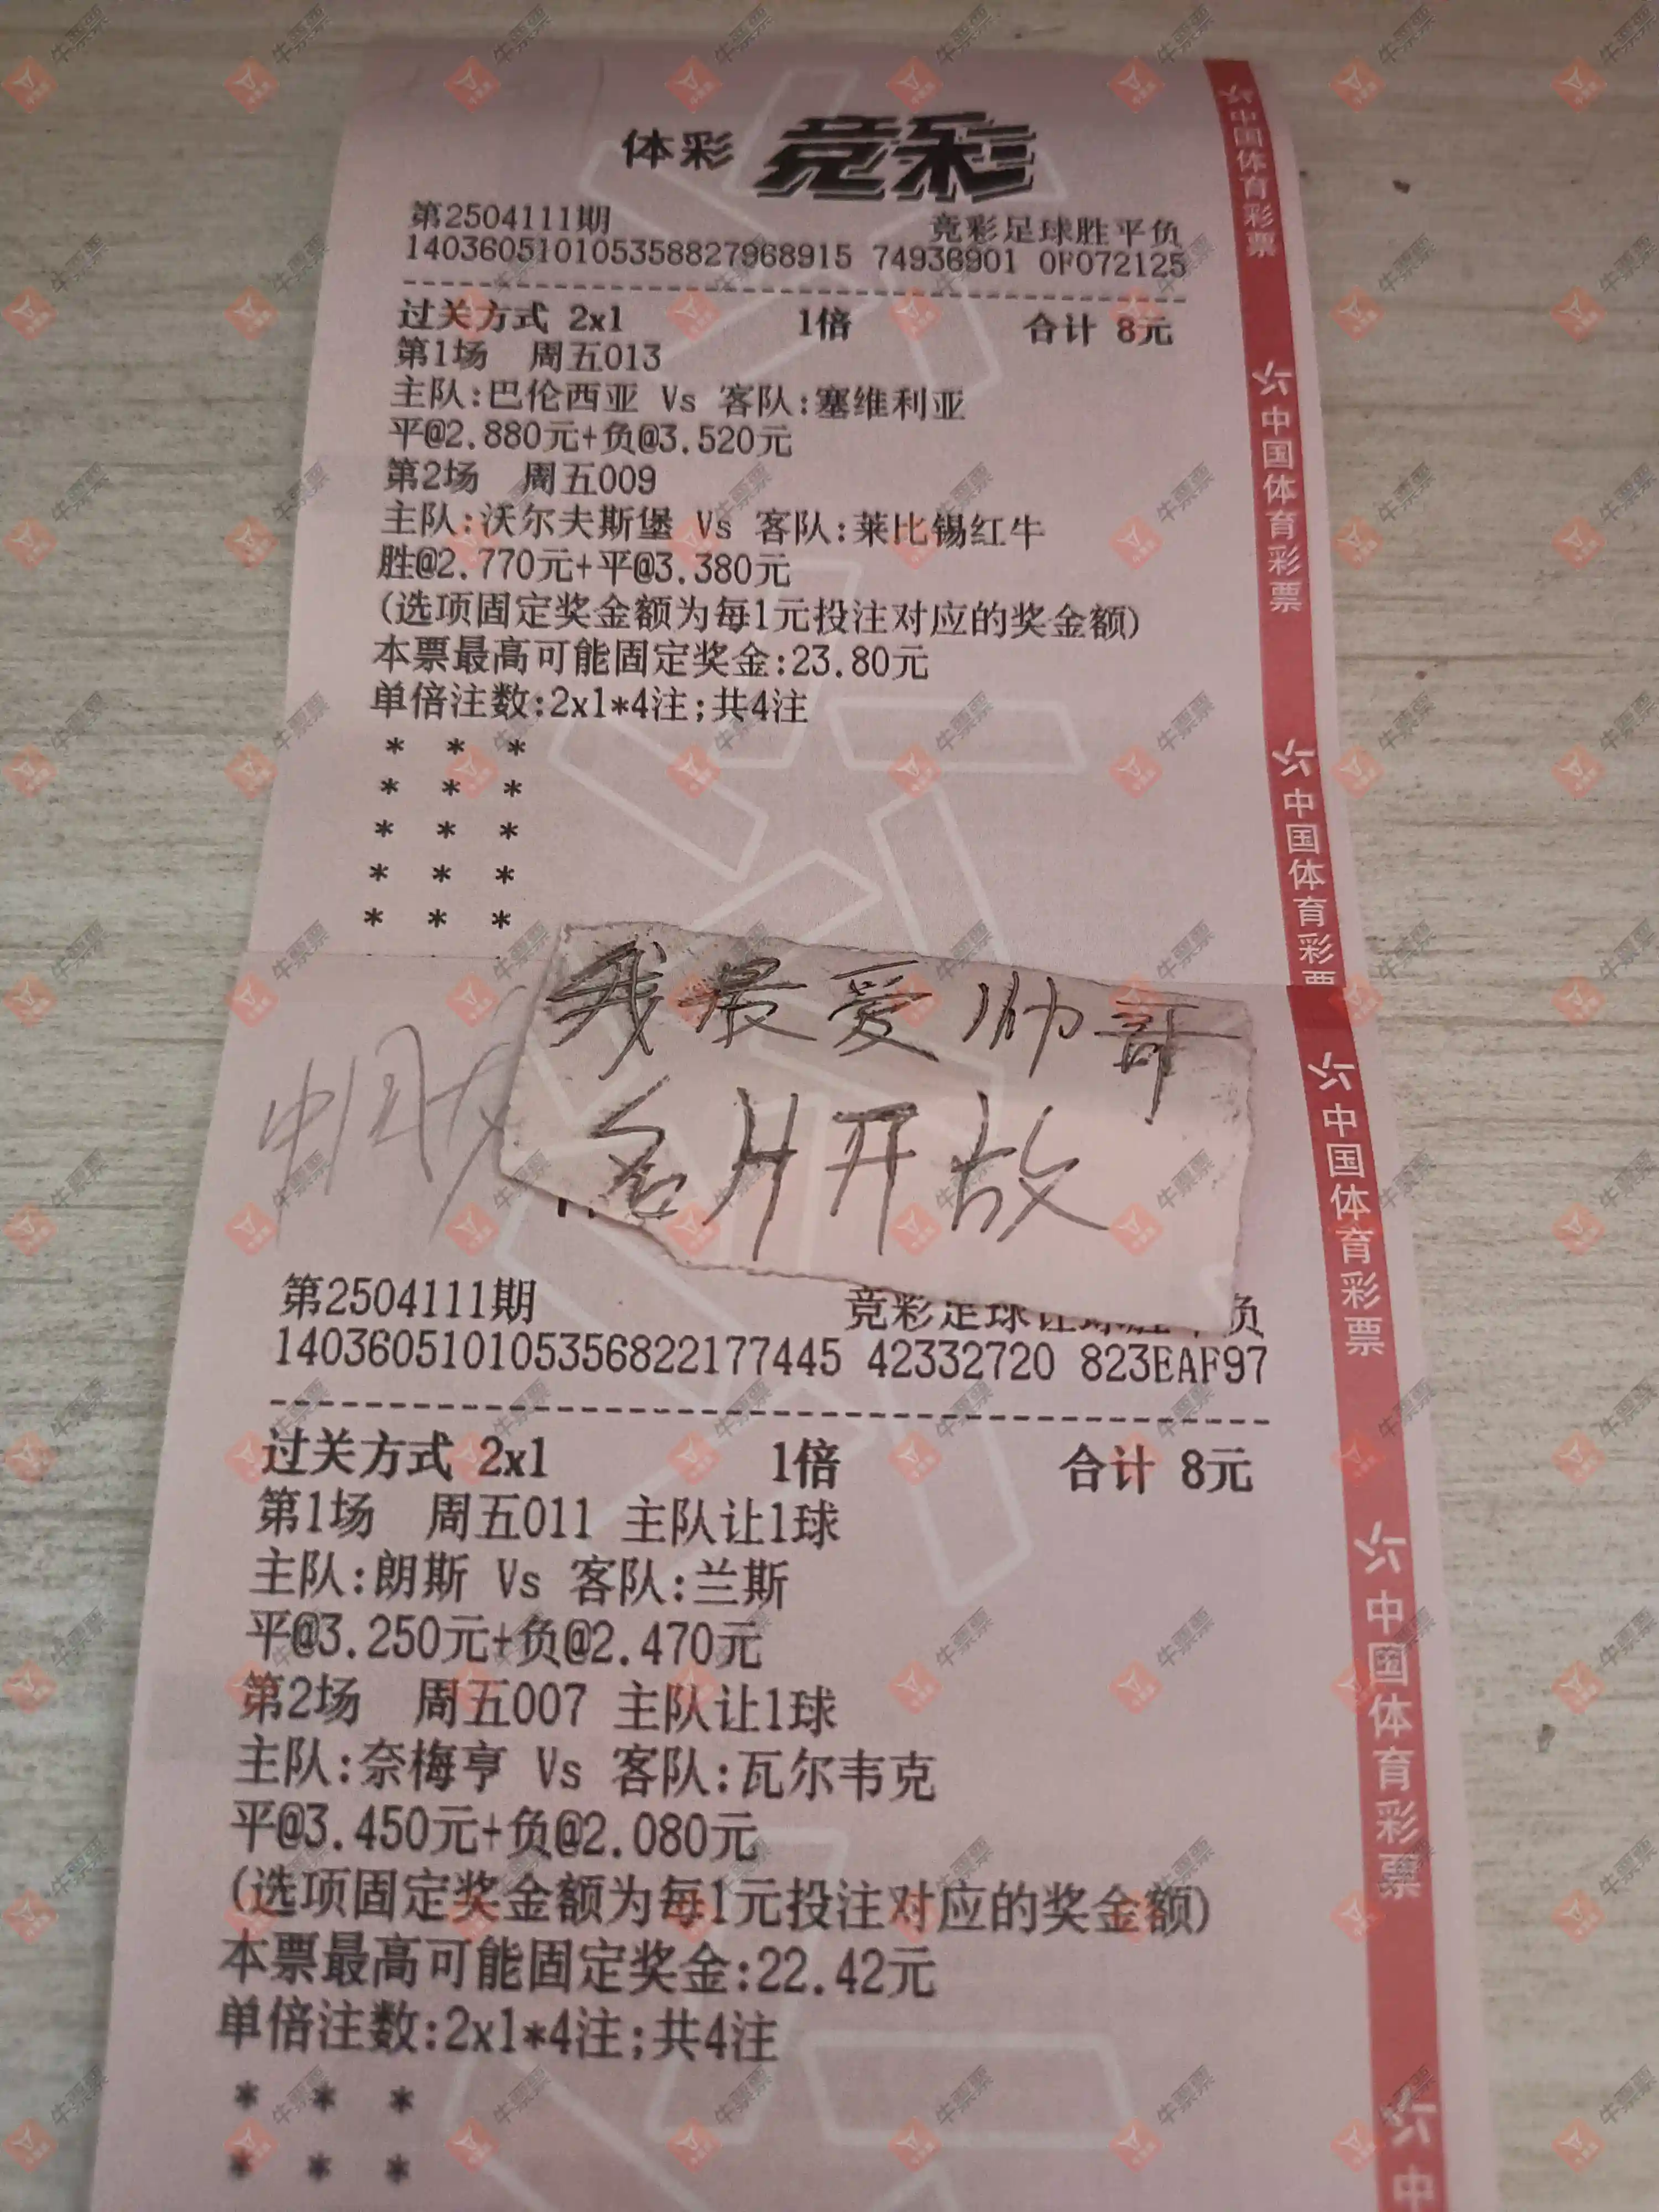 体彩 竞彩
第2504111期 竞彩足球胜平负
140360510105358827968915 74936901 0F072125
过关方式 2x1 1倍 合计 8元
第1场 周五013
主队:巴伦西亚 Vs 客队:塞维利亚
平@2.880元+负@3.520元
第2场 周五009
主队:沃尔夫斯堡 Vs 客队:莱比锡红牛
胜@2.770元+平@3.380元
(选项固定奖金额为每1元投注对应的奖金额)
本票最高可能固定奖金:23.80元
单倍注数:2x1*4注;共4注
* * *
* * *
* * *
* * *
* * *
我最爱帅哥
名片开放
第2504111期 竞彩足球让球胜平负
140360510105356822177445 42332720 823EAF97
过关方式 2x1 1倍 合计 8元
第1场 周五011 主队让1球
主队:朗斯 Vs 客队:兰斯
平@3.250元+负@2.470元
第2场 周五007 主队让1球
主队:奈梅亨 Vs 客队:瓦尔韦克
平@3.450元+负@2.080元
(选项固定奖金额为每1元投注对应的奖金额)
本票最高可能固定奖金:22.42元
单倍注数:2x1*4注;共4注
* * *
* * *
中国体育彩票
中国体育彩票
中国体育彩票
中国体育彩票
中国体育彩票
中
牛票票